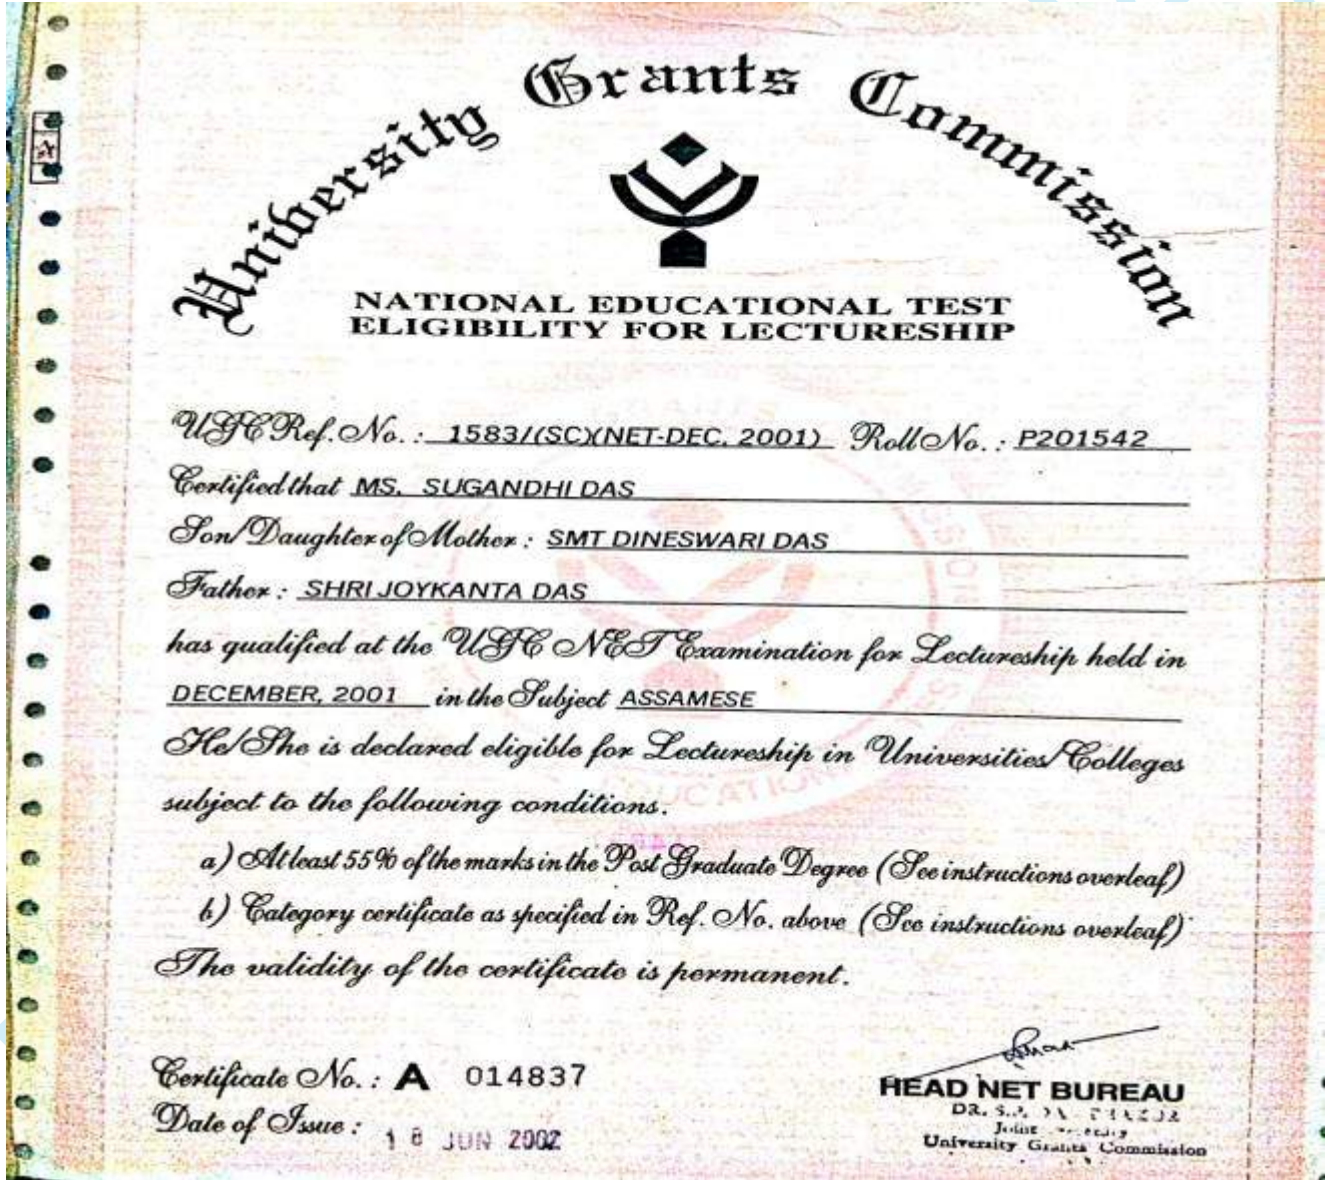 University Grants Commission
NATIONAL EDUCATIONAL TEST
ELIGIBILITY FOR LECTURESHIP
UGC Ref. No. : 1583/(SC)(NET-DEC, 2001) Roll No. : P201542
Certified that MS. SUGANDHI DAS
Son/Daughter of Mother : SMT DINESWARI DAS
Father : SHRI JOYKANTA DAS
has qualified at the UGC NET Examination for Lectureship held in
DECEMBER, 2001 in the Subject ASSAMESE
He/She is declared eligible for Lectureship in Universities/Colleges
subject to the following conditions.
a) At least 55% of the marks in the Post Graduate Degree (See instructions overleaf)
b) Category certificate as specified in Ref. No. above (See instructions overleaf)
The validity of the certificate is permanent.
Certificate No. : A 014837
Date of Issue : 18 JUN 2002
HEAD NET BUREAU
DR. S.P.
Joint
University Grants Commission